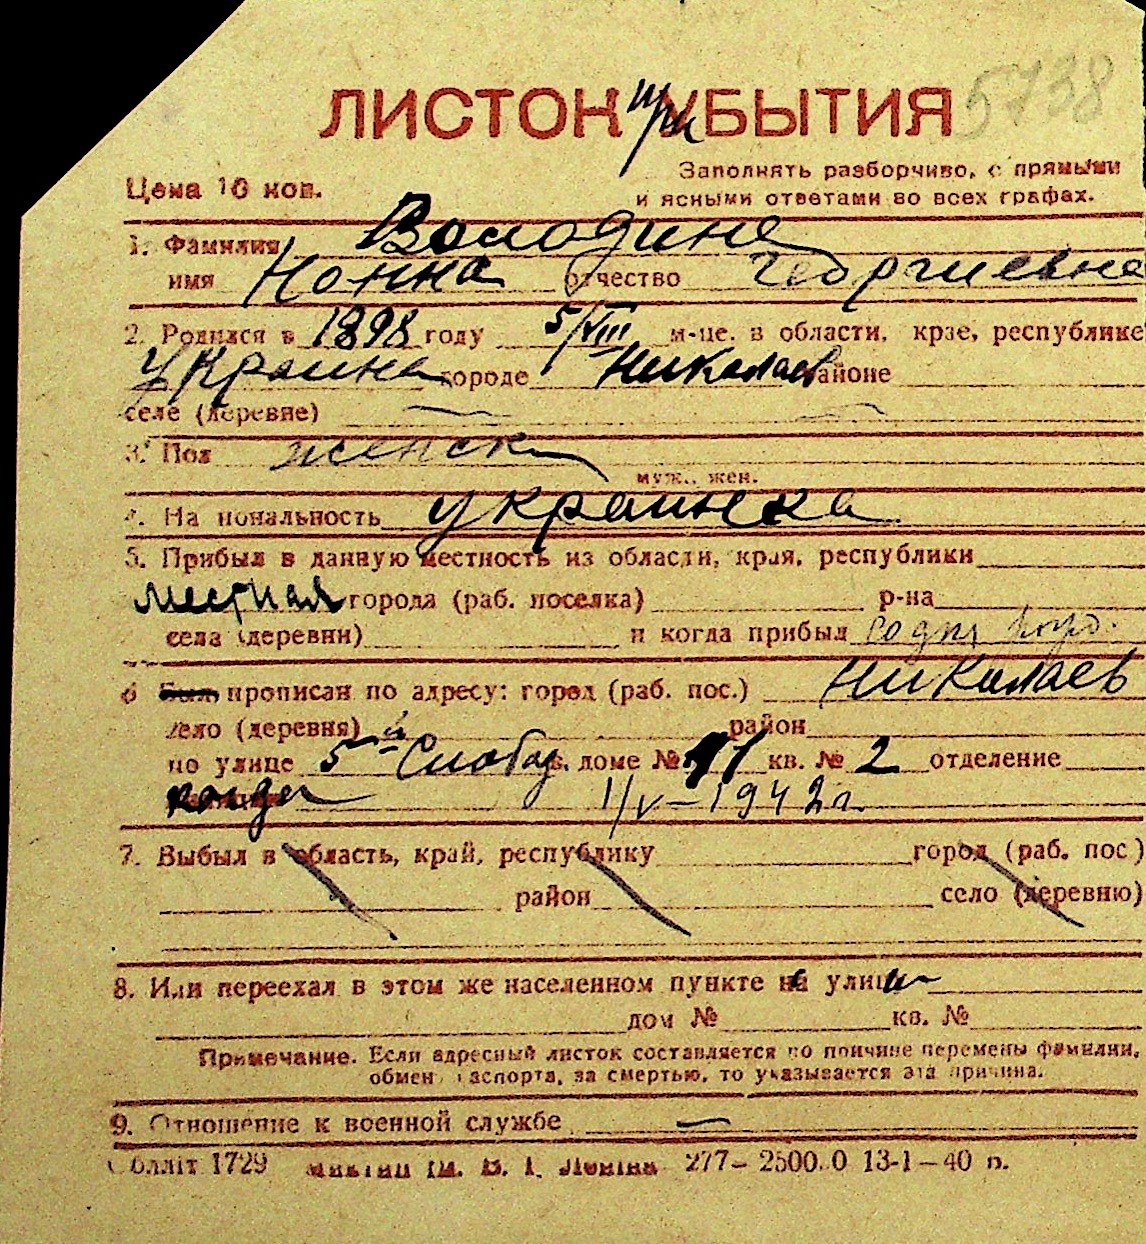 5738
ЛИСТОК при УБЫТИЯ
Заполнять разборчиво, с прямыми
Цена 10 коп.
и ясными ответами во всех графах.
1. Фамилия Володина
имя Нонна отчество Георгиевна
2. Родился в 1898 году 5/VIII м-це. в области, крае, республике
Украина городе Николаев районе
селе (деревне)
3. Пол женск
муж., жен.
4. Национальность украинка
5. Прибыл в данную местность из области, края, республики
местная города (раб. поселка) р-на
села (деревни) и когда прибыл со дня рожд.
6 Был прописан по адресу: город (раб. пос.) Николаев
село (деревня) район
по улице 5 Слобод. в. доме № 11 кв. № 2 отделение
когда 1/V – 1942 г.
7. Выбыл в область, край, республику город (раб. пос.)
район село (деревню)
8. Или переехал в этом же населенном пункте на улицу
дом № кв. №
Примечание. Если адресный листок составляется по причине перемены фамилии,
обмен паспорта, за смертью, то указывается эта причина.
9. Отношение к военной службе —
Облліт 1729 ім. В. І. Леніна 277– 2500.0 13-1–40 п.